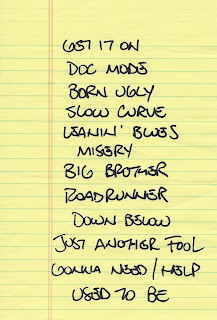 GET IT ON
DOC MODE
BORN UGLY
SLOW CURVE
LEANIN' BLUES
MISERY
BIG BROTHER
ROADRUNNER
DOWN BELOW
JUST ANOTHER FOOL
GONNA NEED/HELP
USED TO BE